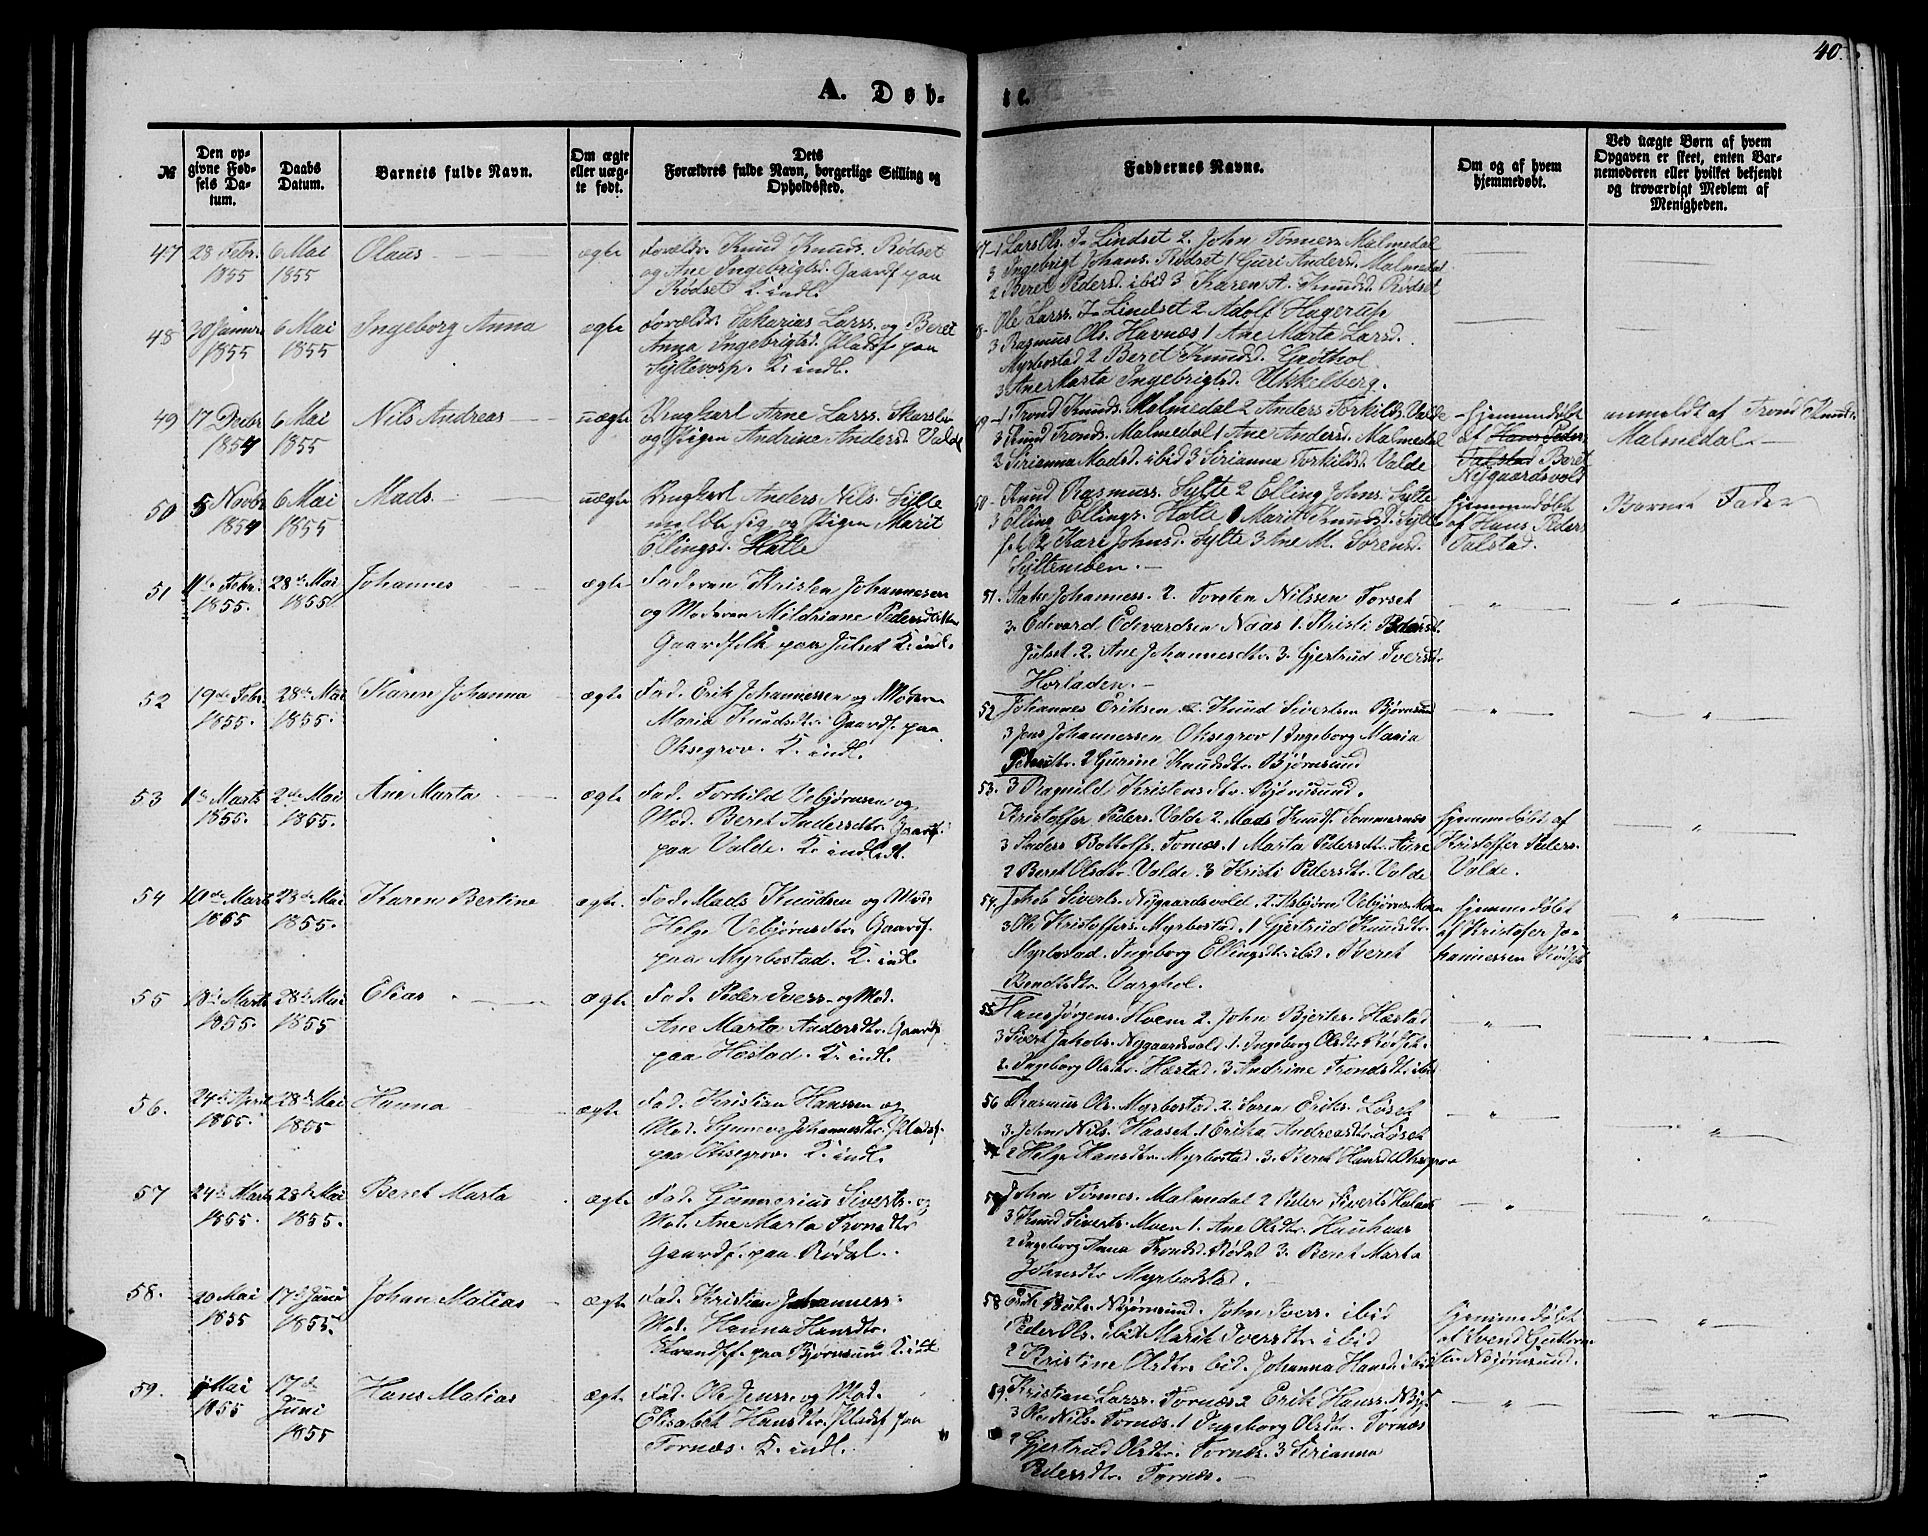 40.
A. Døb-
te.
№
Den op-
givne Fød-
sels Da-
tum.
Daabs
Datum.
Barnets fulde Navn.
Om ægte
eller uæg-
te født.
Dets
Forældres fulde Navn, borgerlige Stilling og
Opholdssted.
Faddernes Navne.
Om og af hvem
hjemmedøbt.
Ved uægte Børn af hvem
Opgaven er skeet, enten Bar-
nemoderen eller hvilket bekjendt
og troværdigt Medlem af
Menigheden.
47 28 Febr. 6 Mai Olaus ægte Foreldr. Knud Knuds. Rødset
1855 1855 og Ane Ingebrigtsd. Gaardf paa
Rødset K. indl.
47-1 Lars Ols. Lindset 2. John Tønness. Malmedal
3 Ingebrigt Johans. Rødset 1 Guri Andersd. Malmedal
2 Beret Pedersd. ibid 3 Karen A. Knudsd. Rødset
48 30 Januar 6 Mai Ingeborg Anna ægte Foreldr. Sakarias Larss. og Beret
1855 1855 Anna Ingebrigtsd. Pladsf paa
K. indl.
48- Ole Larss. Lindset 2 Adolf Hagerup
3 Rasmus Ols. Havnæs 1 Ane Marta Larsd.
Myrbostad 2 Beret Knudsd.
3 Ane Marta Ingebrigtsd. Ukkelberg.
49 17 Decbr 6 Mai Nils Andreas uægte Ungkarl Arne Larss.
1854 1855 og Pigen Andrine Andersd. Valde
49-1 Trond Knuds. Malmedal 2 Anders Torkilds. Valde
3 Knud Tronds. Malmedal 1 Ane Andersd. Malmedal
2 Serianna Madsd. ibid 3 Serianna Torkildsd. Valde
Hjemmedøbt
af Hans Peders.
Talstad Beret
Nygaardsvold
anmeldt af Trond Knuds.
Malmedal
50 5 Novbr 6 Mai Mads uægte Ungkarl Anders Nils. Sylte
1854 1855 meldte sig og Pigen Marit
Ellingsd. Hatle
50- Knud Rasmuss. Sylte 2 Elling Johns. Sylte
3 Elling Ellings. Hatle 1 Marit Knudsd. Sylte
2 Kari Johnsd. Sylte 3 Ane M. Sørensd.
hjemmedøbt
af Hans Peders.
Talstad.
Barnets Fader
51 11te Febr. 28de Mai Johannes ægte Faderen Kristen Johannesen
1855. 1855 og Moderen Mildriane Pedersdtr
Gaardfolk paa Julset K. indl.
51. Johanness. 2. Torsten Nilssen Torset
3. Edevard Edevardsen Naas 1. Kristi Pedersd.
Julset. 2. Ane Johannesdtr. 3. Gjertrud Iversdtr.
Horladen.
52 19de Febr. 28de Mai Karen Johanna ægte Fad. Erik Johannessen og Moderen
1855. 1855. Maria Knudsdtr. Gaardf. paa
Oksegrov. K. indl.
52. Johannes Eriksen 2. Knud Sivertsen Bjørnsund
3 Jens Johannessen Oksegrov 1 Ingeborg Maria
2 Gurine Knudsdtr. Bjørnsund
3 Ragnild Kristensdtr. Bjørnsund.
53 1ste Marts 2den Mai Ane Marta ægte Fad. Torkild Vebjørnsen og
1855. 1855. Mod. Beret Andersdtr. Gaardf.
paa Valde. K. indledt.
53. Kristoffer Peders. Valde 2. Mads Knuds. Sommernæs
3 Anders Bottolfs. Tornæs. 1 Marta Pedersdtr. Aure
2 Beret Olsdtr. Valde. 3 Kristi Pedersdtr. Valde
Hjemmedøbt af
Kristoffer Peders.
Valde.
54 10de Marts 28de Mai Karen Bertine ægte. Fad. Mads Knudsen og Mod.
1855 1855. Helge Vebjørnsdtr. Gaardf.
paa Myrbostad. K. indl.
54. Jakob Siverts. Nygaardsvold. 2. Asbjørn Vebjørns. Moen
3 Ole Kristoffers. Myrbostad. 1 Gjertrud Knudsdtr.
Myrbostad. Ingeborg Ellingsdtr. ibid. Beret
Bendtsdtr. Varghol.
Hjemmedøbt
af Kristofer Jo-
hannessen Rødset
55 18de Marts 28de Mai Elias ægte Fad. Peder Iverss. og Mod.
1855. 1855 Ane Marta Andersdtr. Gaardf.
paa Hæstad. K. indl.
55 Hans Jørgens. Hoem 2. John Bjerkes. Hæstad
3 Sivert Jakobs. Nygaardsvold. 1. Ingeborg Olsdtr. Rødset.
2. Ingeborg Olsdtr. Hæstad. 3 Andrine Trondsdtr. ibid
56. 24de April 28de Mai Hanna ægte Fad. Kristian Hanssen og
1855. 1855 Mod. Synneva Johannesdtr. Pladsf.
paa Oksegrov. K. indl.
56 Rasmus Ols. Myrbostad. 2. Søren Eriks. Løset
3. John Nils. Haaset. 1 Erika Andreasdtr. Løset
2 Helge Hansdtr. Myrbostad. 3. Beret Hansdtr. Oksegrov
57 24de Marts 28de Mai Beret Marta ægte Fad. Gunnerius Siverts. og
1855. 1855. Mod. Ane Marta Trondsdtr
Gaardf. paa Rødal.
57 John Tønnes. Malmedal 2 Peder Siverts.
3 Knud Siverts. Moen 1. Ane Olsdtr. Hauhaar
2 Ingeborg Anna Trondsd. Rødal 3. Beret Marta
Johnsdtr. Myrbostad.
58. 20 Mai 17de Juni Johan Matias ægte Fad. Kristian Johanness.
1855 1855. Mod. Hanna Hansdtr.
Strandsf. paa Bjørnsund K. indl
58 Erik N. Bjørnsund. John Ivers. ibid
Peder Ols. ibid Marit Iversdtr. ibid
2 Kristine Olsdtr. ibid. Johanna Hansd. ibid
Hjemmedøbt
af Svend Guttorm-
sen N. Bjørnsund.
59. 1 Mai 17de Hans Matias ægte Fad. Ole Jenss. og Mod.
1855 Juni Elisabet Hansdtr. Pladsf paa
1855 Tornæs. K. indl.
59. Kristian Larss. Tornæs 2 Erik Hanss. N Bjs
3 Ole Nils. Tornæs. 1 Ingeborg Olsdtr. Tornæs
2 Gjertrud Olsdtr. Tornæs. 3 Serianna
Pedersdtr. Tornæs.